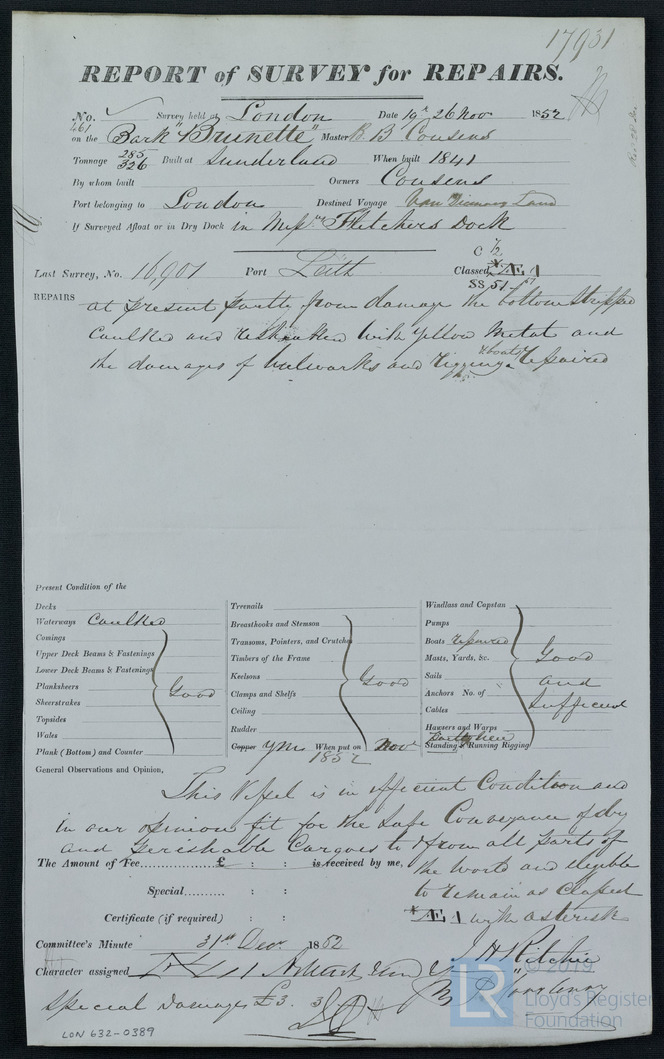 17931
REPORT of SURVEY for REPAIRS.
No. Survey held at London Date 19th 26 Nov 1852
461
on the Bark "Brunette" Master B. B Cousens
Tonnage 285 326 Built at Sunderland When built 1841
By whom built Owners Cousens
Port belonging to London Destined Voyage Van Diemans Land
If Surveyed Afloat or in Dry Dock in Messrs Fletchers Dock
Last Survey, No. 16,901 Port Leith Classed Æ 1
SS 51
REPAIRS at present partly from damage the bottom stripped
caulked and resheathed with yellow metal and
the damages of bulwarks and rigging & boats repaired
Present Condition of the
Decks
Waterways Caulked
Comings
Upper Deck Beams & Fastenings
Lower Deck Beams & Fastenings
Planksheers Good
Sheerstrakes
Topsides
Wales
Plank (Bottom) and Counter
Treenails
Breasthooks and Stemson
Transoms, Pointers, and Crutches
Timbers of the Frame
Keelsons Good
Clamps and Shelfs
Ceiling
Rudder
Copper YM When put on Nov 1852
Windlass and Capstan
Pumps
Boats repaired
Masts, Yards, &c. Good
Sails and
Anchors No. of
Cables Sufficient
Hawsers and Warps
Standing & Running Rigging partly new
General Observations and Opinion,
This Vessel is in efficient Condition and
in our opinion fit for the safe Conveyance of dry
and Perishable Cargoes to & from all parts of
the World and eligible
to remain as Classed
*Æ 1 with asterisk
The Amount of Fee............... £ : : is received by me,
Special........... : :
Certificate (if required) : :
Committee's Minute 31st Decr. 1852
Character assigned
J H Ritchie
Special Damages £3. 3
LON 632-0389
LR
© 2019
Lloyd's Register
Foundation